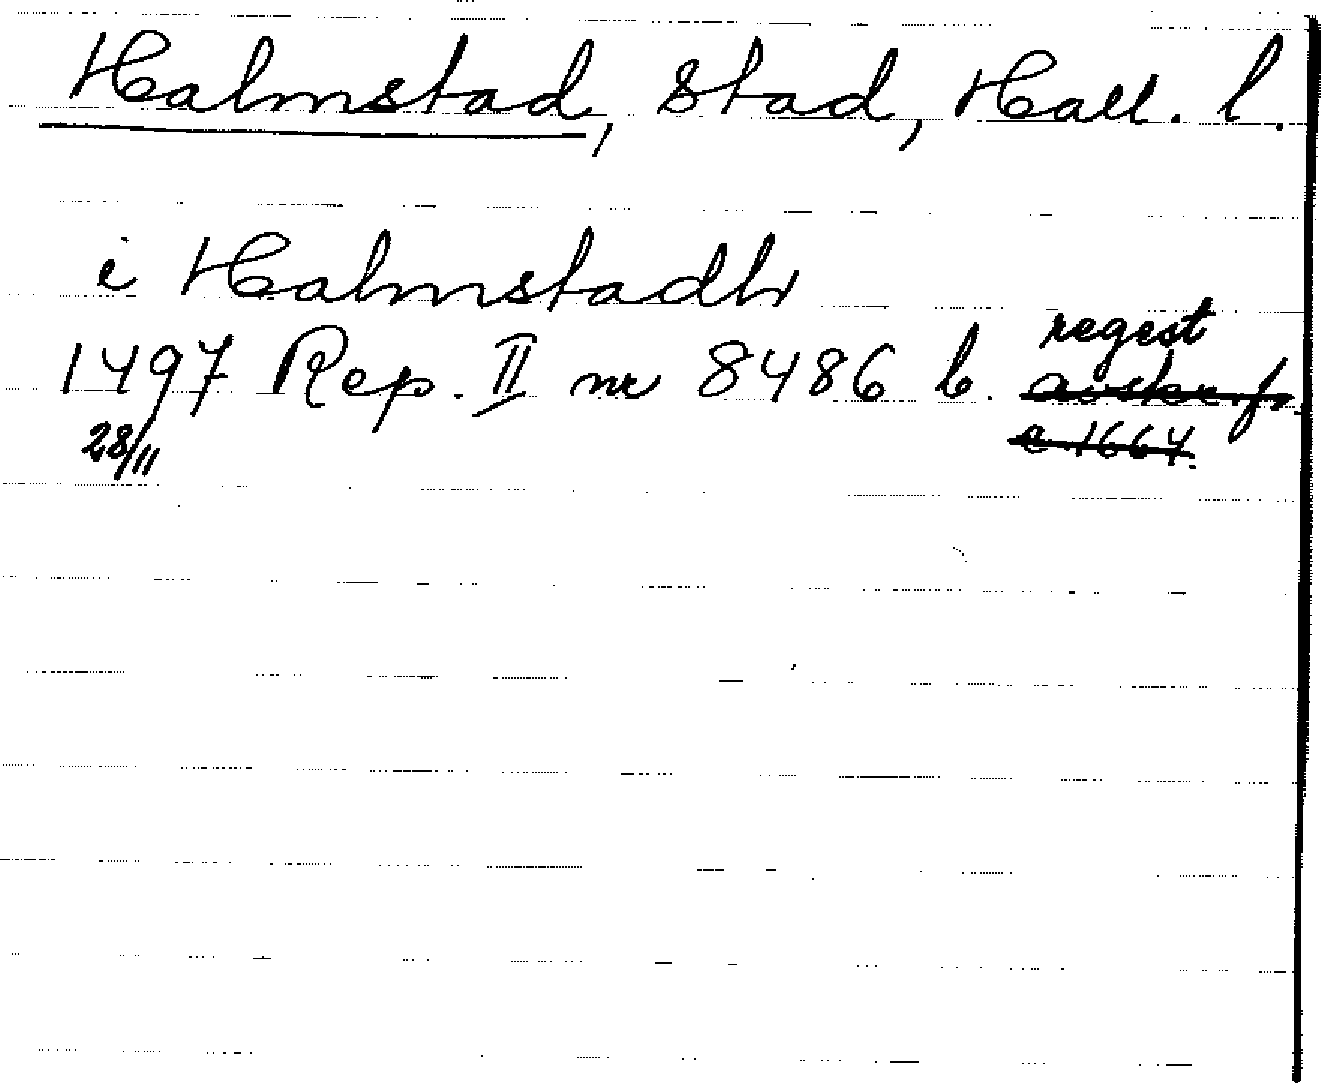 Halmstad, Stad, Hall. l.
i Halmstadh
1497 Rep. II nr 8486 b. regest
avskr. fr.
28/11
c 1664.